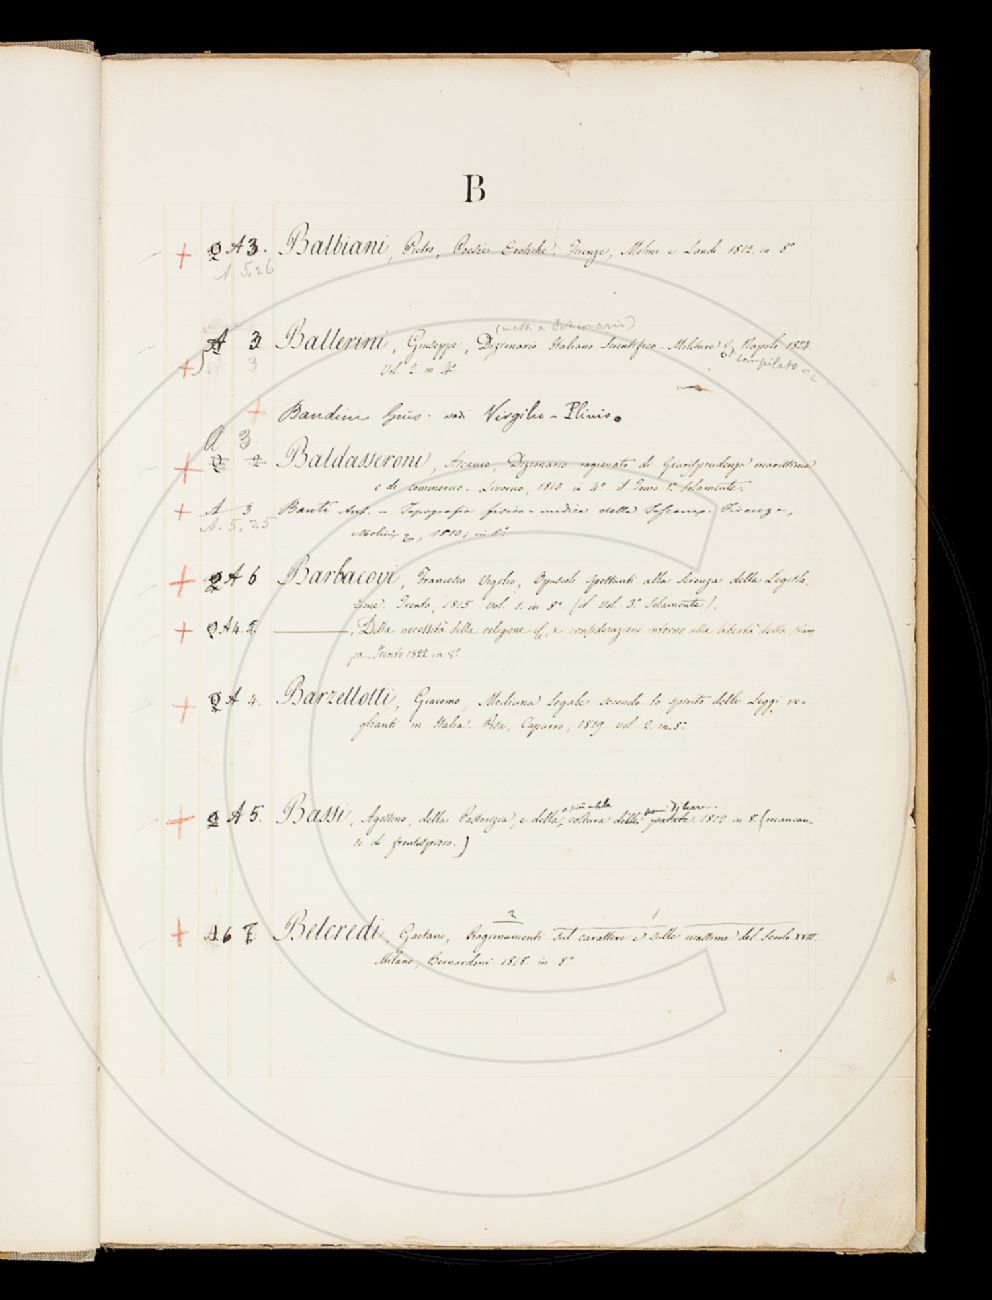 B
A 3. Balbiani, Pietro, Poesie Erotiche. Firenze, Molini e Landi 1812. in 8°
A 5.26
(metti a Dizionario)
A 3 Ballerini, Giuseppe, Dizionario Italiano Scientifico-Militare Napoli 1824.
3 Vol. 2. in 4° compilato
Bandini vedi Virgilio - Plinio.
A 3
Baldasseroni, Ascanio, Dizionario ragionato di Giurisprudenza marittima
e di commercio. Livorno, 1810 in 4° il Tomo 1° solamente.
A 3 Banti Ant. - Topografia fisico-medica della Toscana. Firenze,
A. 5.25
1810; in 8°
A 6 Barbacovi, Francesco Vigilio, Opuscoli spettanti alla Scienza della Legisla-
zione. Trento, 1815 vol. 1. in 8° (il vol. 3° solamente).
A 4. 2. ———, Della necessità della religione, e considerazione intorno alla libertà della stam-
pa. Trento 1822 in 8°
A 4. Barzellotti, Giacomo, Medicina legale secondo lo spirito delle Leggi ve-
glianti in Italia. Pisa, Capurro, 1819 vol 2. in 8°
A 5. Bassi, Agostino, della Pastorizia, e della coltura delle patate 1812 in 8° (mancan-
te di frontespizio.)
2 1
A 6 7 Belcredi, Gaetano, Ragionamenti sul carattere e sulle massime del Secolo XVIII
Milano, Bernardoni 1818 in 8°